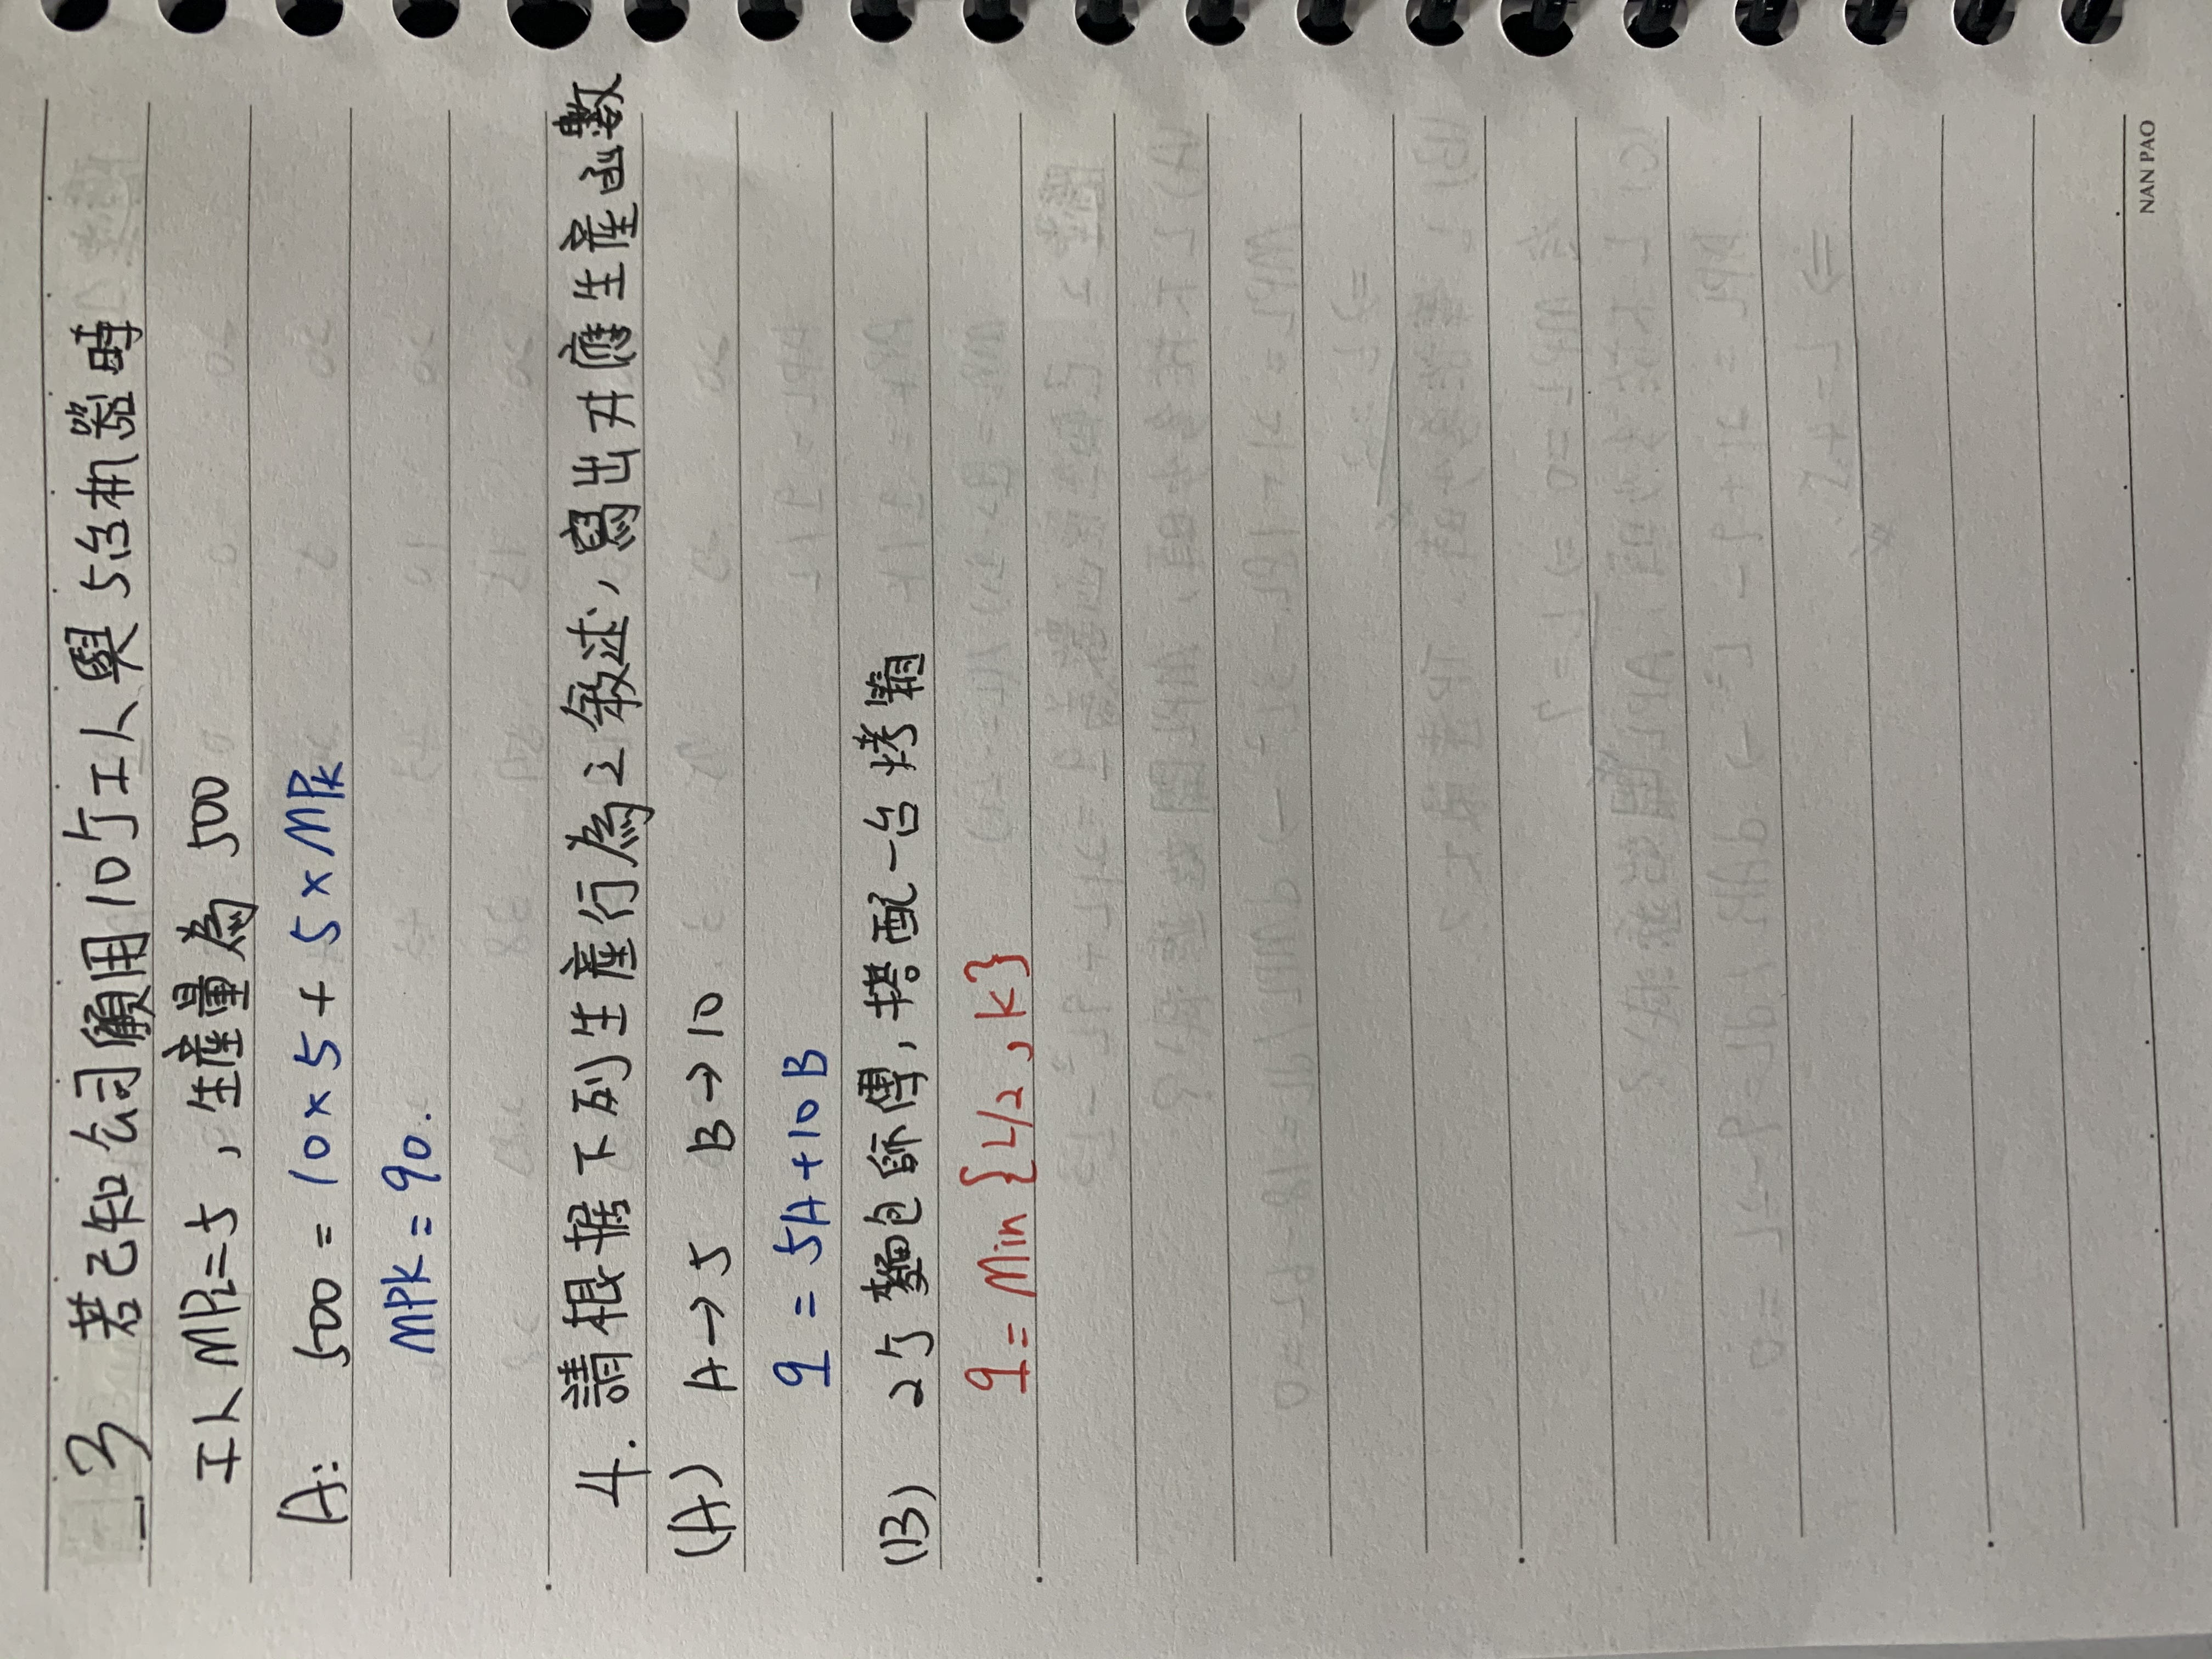 3 若已知公司顧用10个工人與5台机器時
工人MPL=5，生產量為 500
A: 500 = 10×5 + 5×MPk
MPK = 90.
4. 請根据下列生產行為之敘述，寫出对應生產函數
(A) A→5 B→10
q = 5A+10B
(B) 2个麵包師傅，搭配一台烤箱
q = Min {L/2 , K}
NAN PAO